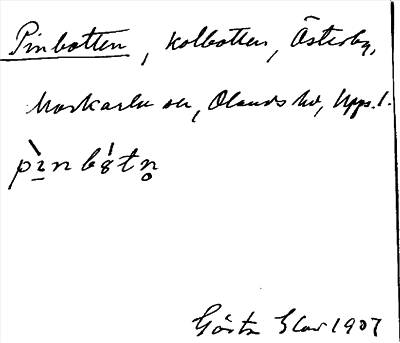 Pinbotten, kolbotten, Österby,
Morkarla sn, Olands hd, Upps. l.
pìnbótn̥
Gösta Elow 1907